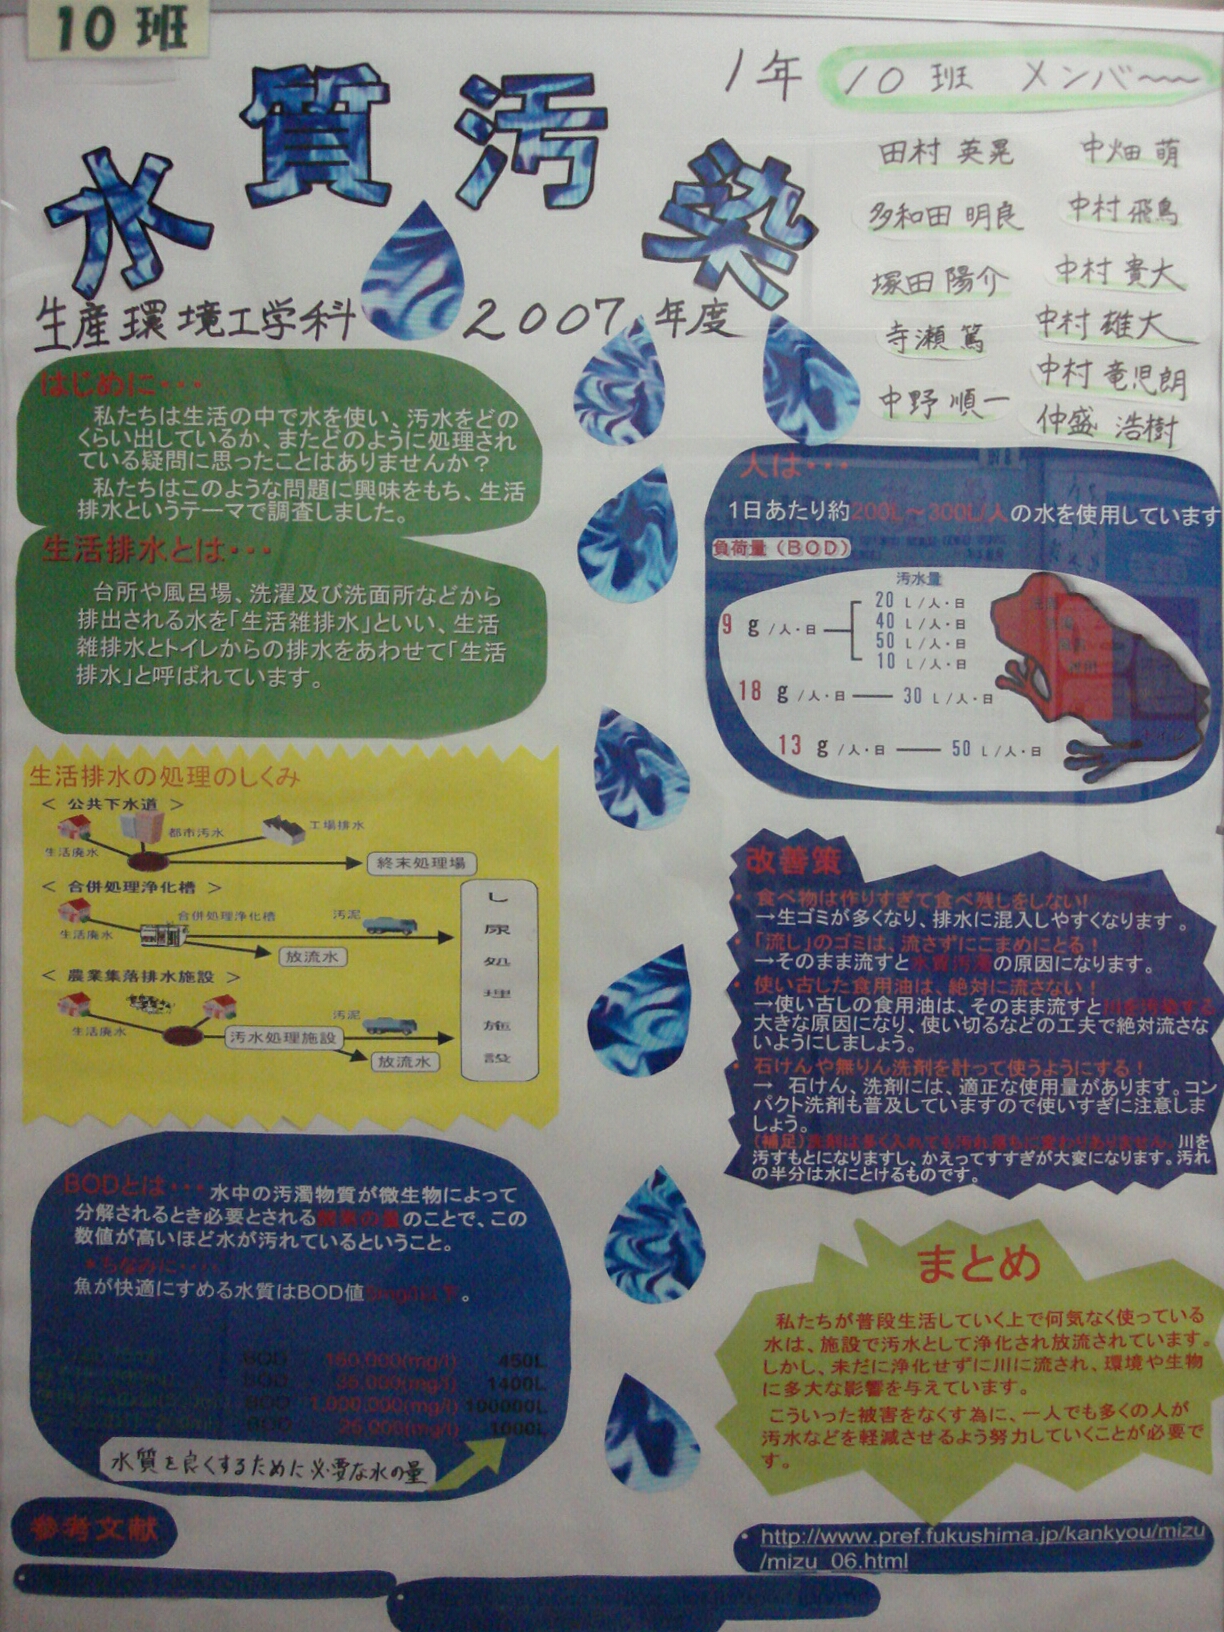 10 班
水質汚染
1年 10 班 メンバー
田村 英晃 中畑 萌
多和田 明良 中村 飛鳥
塚田 陽介 中村 貴大
寺瀬 篤 中村 雄大
中野 順一 中村 竜児朗
仲盛 浩樹
生産環境工学科 2007年度
はじめに・・・
私たちは生活の中で水を使い、汚水をどの
くらい出しているか、またどのように処理され
ている疑問に思ったことはありませんか?
私たちはこのような問題に興味をもち、生活
排水というテーマで調査しました。
生活排水とは・・・
台所や風呂場、洗濯及び洗面所などから
排出される水を「生活雑排水」といい、生活
雑排水とトイレからの排水をあわせて「生活
排水」と呼ばれています。
生活排水の処理のしくみ
< 公共下水道 >
都市汚水
工場排水
生活廃水
終末処理場
< 合併処理浄化槽 >
合併処理浄化槽
汚泥
生活廃水
放流水
< 農業集落排水施設 >
汚泥
生活廃水
汚水処理施設
放流水
し尿処理施設
BODとは・・・水中の汚濁物質が微生物によって
分解されるとき必要とされる酸素の量のことで、この
数値が高いほど水が汚れているということ。
*ちなみに・・・・
魚が快適にすめる水質はBOD値5mg/l以下。
BOD 150,000(mg/l) 450L
BOD 35,000(mg/l) 1400L
BOD 1,000,000(mg/l) 100000L
BOD 25,000(mg/l) 1000L
水質を良くするために必要な水の量
参考文献
人は・・・
1日あたり約200L～300L/人の水を使用しています
負荷量(BOD)
汚水量
9 g /人・日
20 L/人・日
40 L/人・日
50 L/人・日
10 L/人・日
18 g /人・日 30 L/人・日
13 g /人・日 50 L/人・日
改善策
・ 食べ物は作りすぎて食べ残しをしない!
→生ゴミが多くなり、排水に混入しやすくなります 。
・ 「流し」のゴミは、流さずにこまめにとる!
→そのまま流すと水質汚濁の原因になります。
・ 使い古した食用油は、絶対に流さない!
→使い古しの食用油は、そのまま流すと川を汚染する
大きな原因になり、使い切るなどの工夫で絶対流さな
いようにしましょう。
・ 石けんや無りん洗剤を計って使うようにする!
→ 石けん、洗剤には、適正な使用量があります。コン
パクト洗剤も普及していますので使いすぎに注意しま
しょう。
(補足)洗剤は多く入れても汚れ落ちに変わりありません。川を
汚すもとになりますし、かえってすすぎが大変になります。汚れ
の半分は水にとけるものです。
まとめ
私たちが普段生活していく上で何気なく使っている
水は、施設で汚水として浄化され放流されています。
しかし、未だに浄化せずに川に流され、環境や生物
に多大な影響を与えています。
こういった被害をなくす為に、一人でも多くの人が
汚水などを軽減させるよう努力していくことが必要で
す。
・ http://www.pref.fukushima.jp/kankyou/mizu
/mizu_06.html